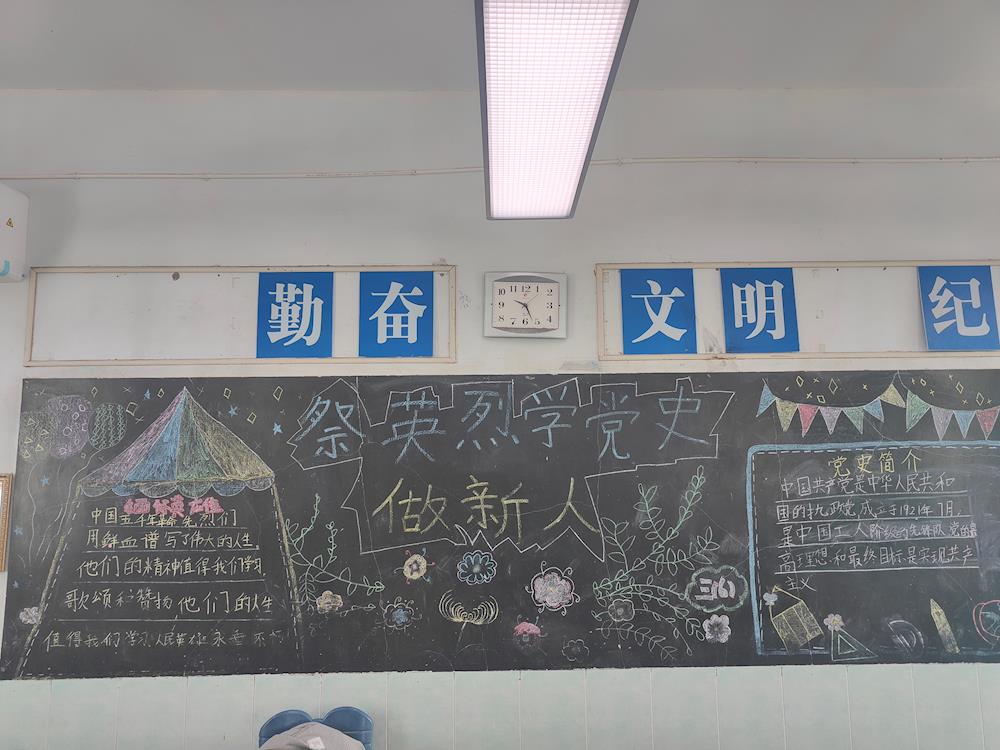 勤 奋
文 明
纪
10 11 12 1 2 3 4 5 6 7 8 9
祭英烈学党史
做新人
中国五千年
用鲜血谱写了伟大的人生,
他们的精神值得我们学习
歌颂和赞扬他们的人生
值得我们学习人民英雄永垂不朽
三(6)
党史简介
中国共产党是中华人民共和
国的执政党成立于1921年7月,
是中国工人阶级的先锋队
高理想和最终目标是实现共产
主义